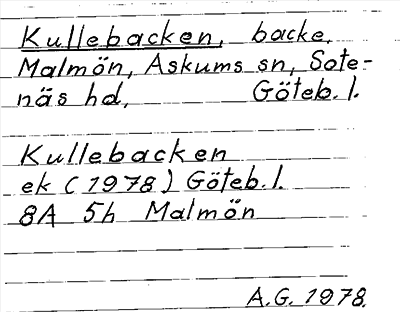 Kullebacken, backe,
Malmön, Askums sn, Sote-
näs hd, Göteb. l.
Kullebacken
ek (1978) Göteb. l.
8A 5h Malmön
A.G. 1978.